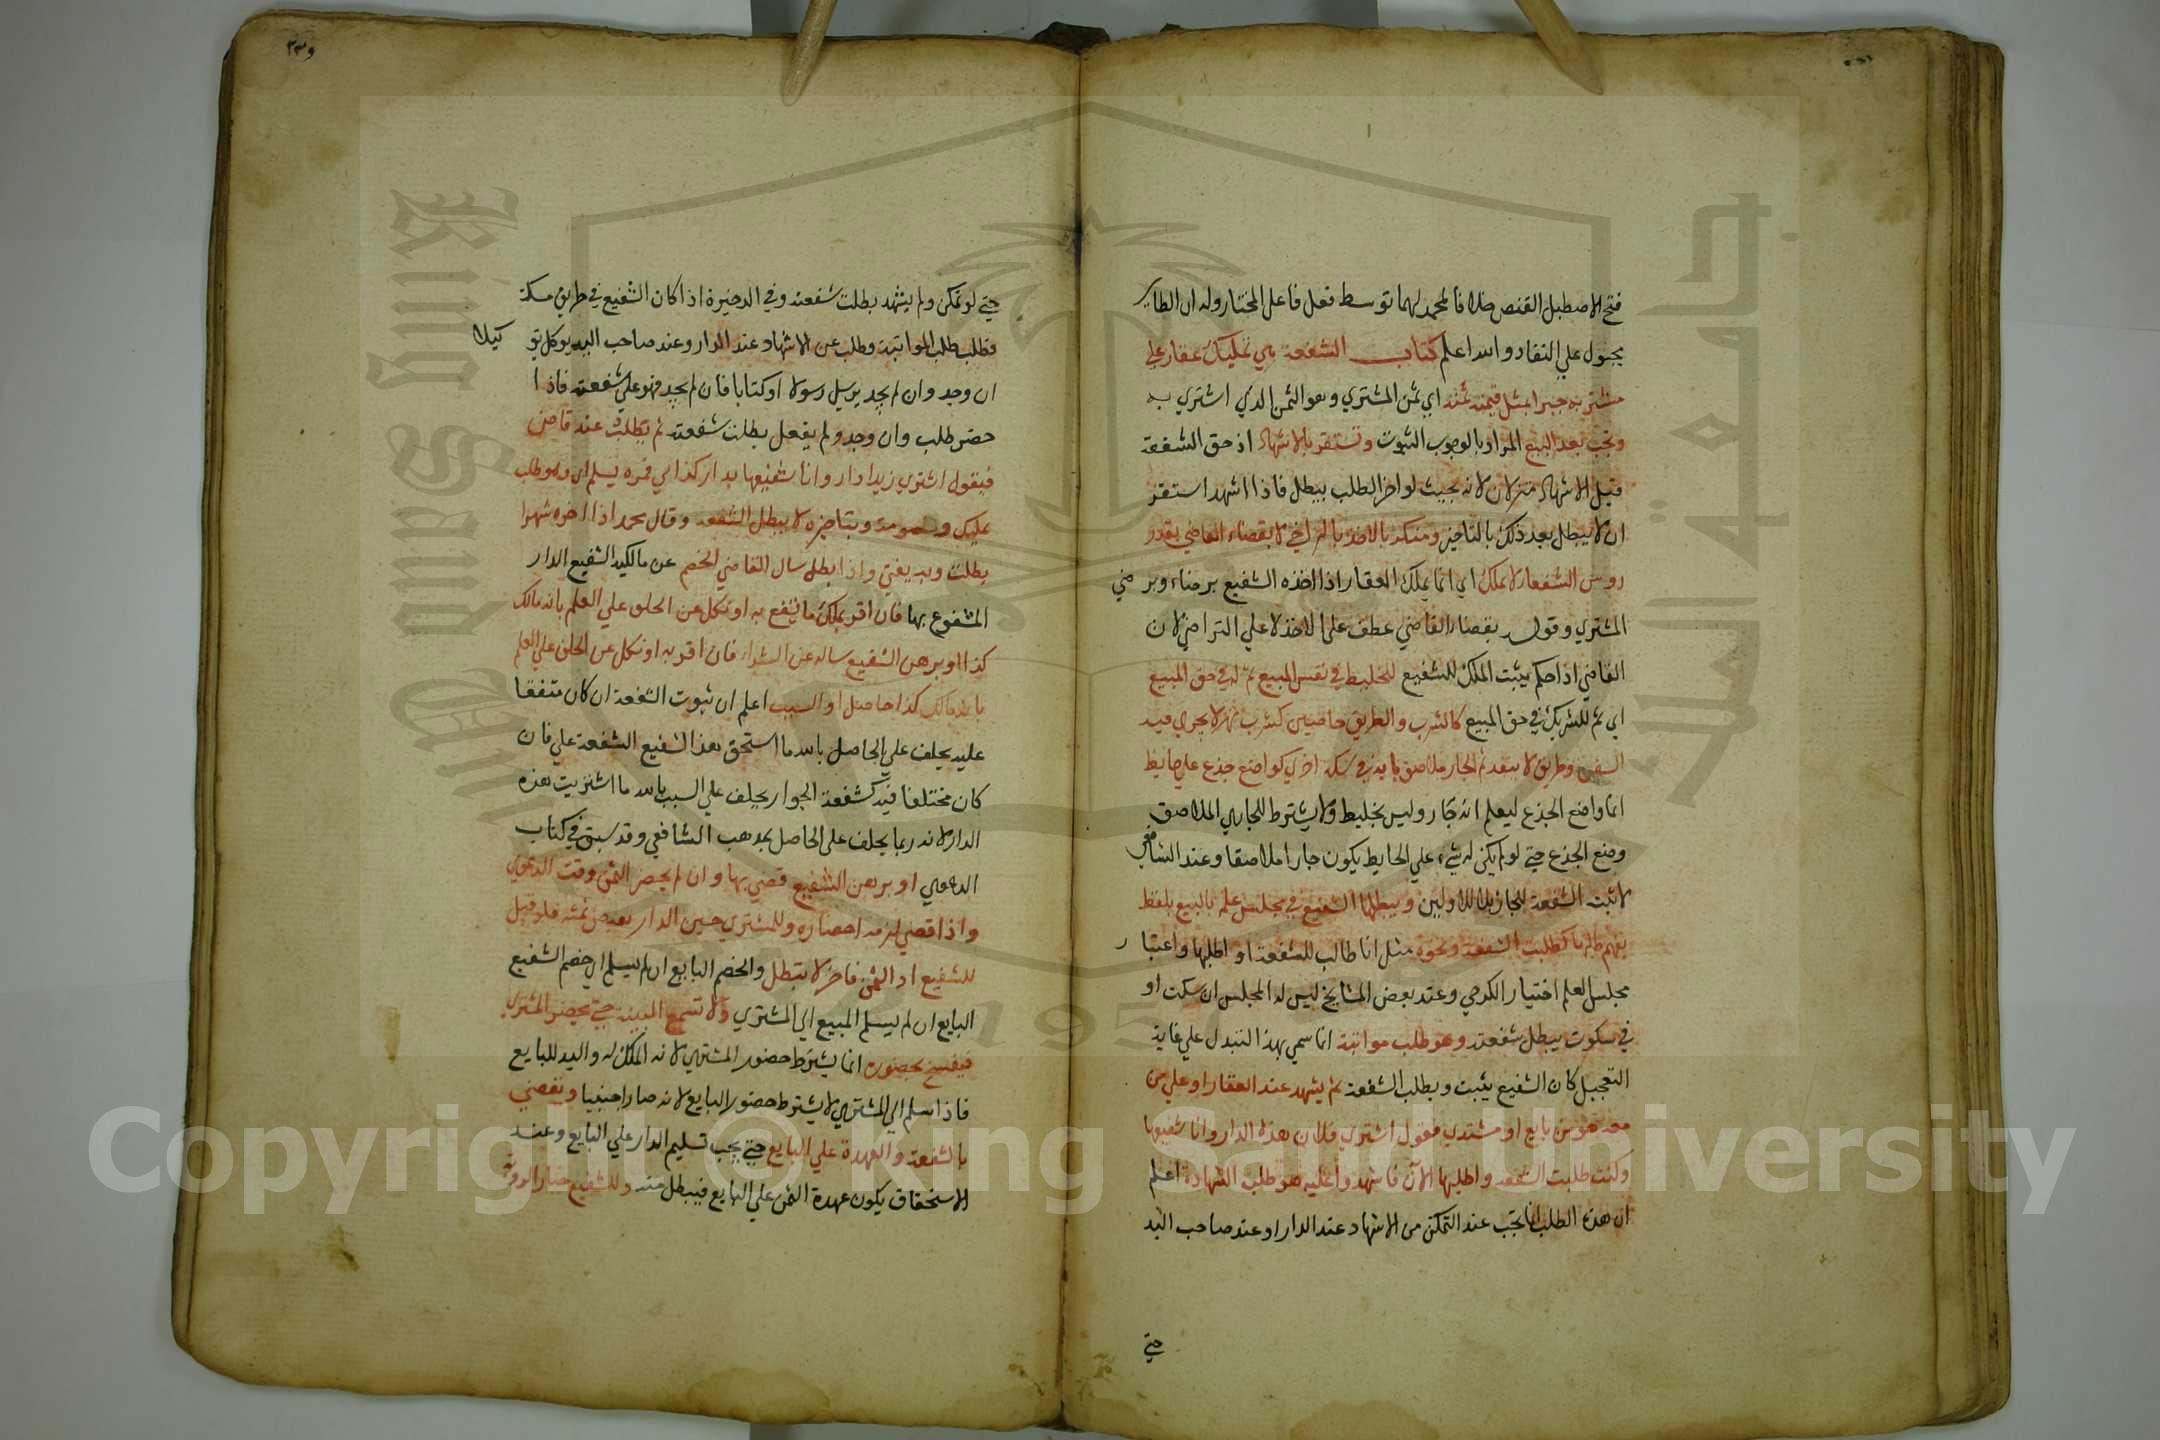 فتح الاصطبل القفص خلافا لمحمد لهما توسط فعل فاعل المختار وله ان الطاير
مجبول علي النفار والله اعلم كتاب الشفعة هي تمليك عقار علي
مشتريه جبرا بمثل قيمته ثمنه اي ثمن المشتري وهو الثمن الذي اشتري به
وتجب بعد البيع المراد بالوجوب الثبوت وتستقر بالاشهاد اذ حق الشفعة
قبل الاشهاد متزلزل لانه بحيث لو اخر الطلب يبطل فاذا اشهد استقر
ان لا يبطل بعد ذلك بالتاخير وتملك بالاخذ بالتراضي لا بقضاء القاضي بقدر
روس الشفعا لا الملك اي انما يملك العقار اذا اخذه الشفيع برضاء وبرضي
المشتري وقوله بقضاء القاضي عطف علي الاخذ لا علي التراضي لان
القاضي اذا حكم يثبت الملك للشفيع للخليط في نفس المبيع ثم له في حق المبيع
اي ثم للشريك في حق المبيع كالشرب والطريق خاصين كشرب نهر لا يجري فيه
السفن وطريق لا ينفذ ثم لجار ملاصق بابه في سكة اخري كواضع جذع علي حايط
انما واضع الجذع ليعلم انه جار وليس بخليط ولا يشترط للجار الملاصق
وضع الجذع حتي لو لم يكن له شيء علي الحايط يكون جارا ملاصقا وعند الشافعي
لا تثبت الشفعة للجار بل للاولين ويطلبها الشفيع في مجلس علمه بالبيع بلفظ
يفهم طلبها كطلبت الشفعة ونحوه مثل انا طالب للشفعة او اطلبها واعتبار
مجلس العلم اختيار الكرخي وعند بعض المشايخ ليس له المجلس ان سكت ادني
في سكوت يبطل شفعته وهو طلب مواثبة انما سمي بهذا التبدل علي غاية
التعجيل كان الشفيع يثبت ويطلب الشفعة ثم يشهد عند العقار او علي من
معه هو من بايع او مشتري فيقول اشتري فلان هذه الدار وانا شفيعها
وكنت طلبت الشفعة واطلبها الآن فاشهدوا عليه هو طلب الشهادة اعلم
ان هذه الطلب انما تجب عند التمكن من الاشهاد عند الدار او عند صاحب اليد
حتي
حتي لو تمكن ولم يشهد بطلت شفعته وفي الدخيرة اذا كان الشفيع في طريق مكة
فطلب طلب المواثبة وطلب عن الاشهاد عند الدار وعند صاحب اليد يوكل توكيلا
ان وجد وان لم يجد يرسل رسولا او كتابا فان لم يجد فهو علي شفعته فاذا
حضر طلب وان وجد ولم يفعل بطلت شفعته ثم يطلب عند قاضي
فيقول اشتري زيد دار وانا شفيعها بدار كذا لي فمره يسلم الي وهو طلب
تمليك وخصومة وبتاخيره لا يبطل الشفعة وقال محمد اذا اخره شهرا
بطلت وبه يفتي واذا طلب سال القاضي الخصم عن مالكية الشفيع الدار
المشفوع بها فان اقر بملك ما يشفع به او نكل عن الحلف علي العلم بانه مالك
كذا او برهن الشفيع ساله عن الشراء فان اقر به او نكل عن الحلف علي العلم
بانه مالك كذا حاصل او السبب اعلم ان ثبوت الشفعة ان كان متفقا
عليه يحلف علي الحاصل بالله ما استحق هذا الشفيع الشفعة علي فان
كان مختلفا فيه كشفعة الجوار يحلف علي السبب بالله ما اشتريت هذه
الدار لانه ربما يحلف علي الحاصل بمذهب الشافعي وقد سبق في كتاب
الدعوي او برهن الشفيع قضي بها وان لم يحضر الثمن وقت الدعوي
واذا قضي لزمه احضاره وللمشتري حبس الدار بقبض ثمنه فلو قيل
للشفيع اد الثمن فاخر لا تبطل والخصم البايع ان لم يسلم اي خصم الشفيع
البايع ان لم يسلم المبيع الي المشتري ولا تسمع البينة حتي يحضر المشتري
فيفسخ بحضوره انما يشترط حضور المشتري لانه الملك له واليد للبايع
فاذا سلم الي المشتري لا يشترط حضور البايع لانه صار اجنبيا ويقضي
بالشفعة والعهدة علي البايع حتي يجب تسليم الدار علي البايع وعند
الاستحقاق يكون عهدة الثمن علي البايع فيبطل منه وللشفيع خيار الروية